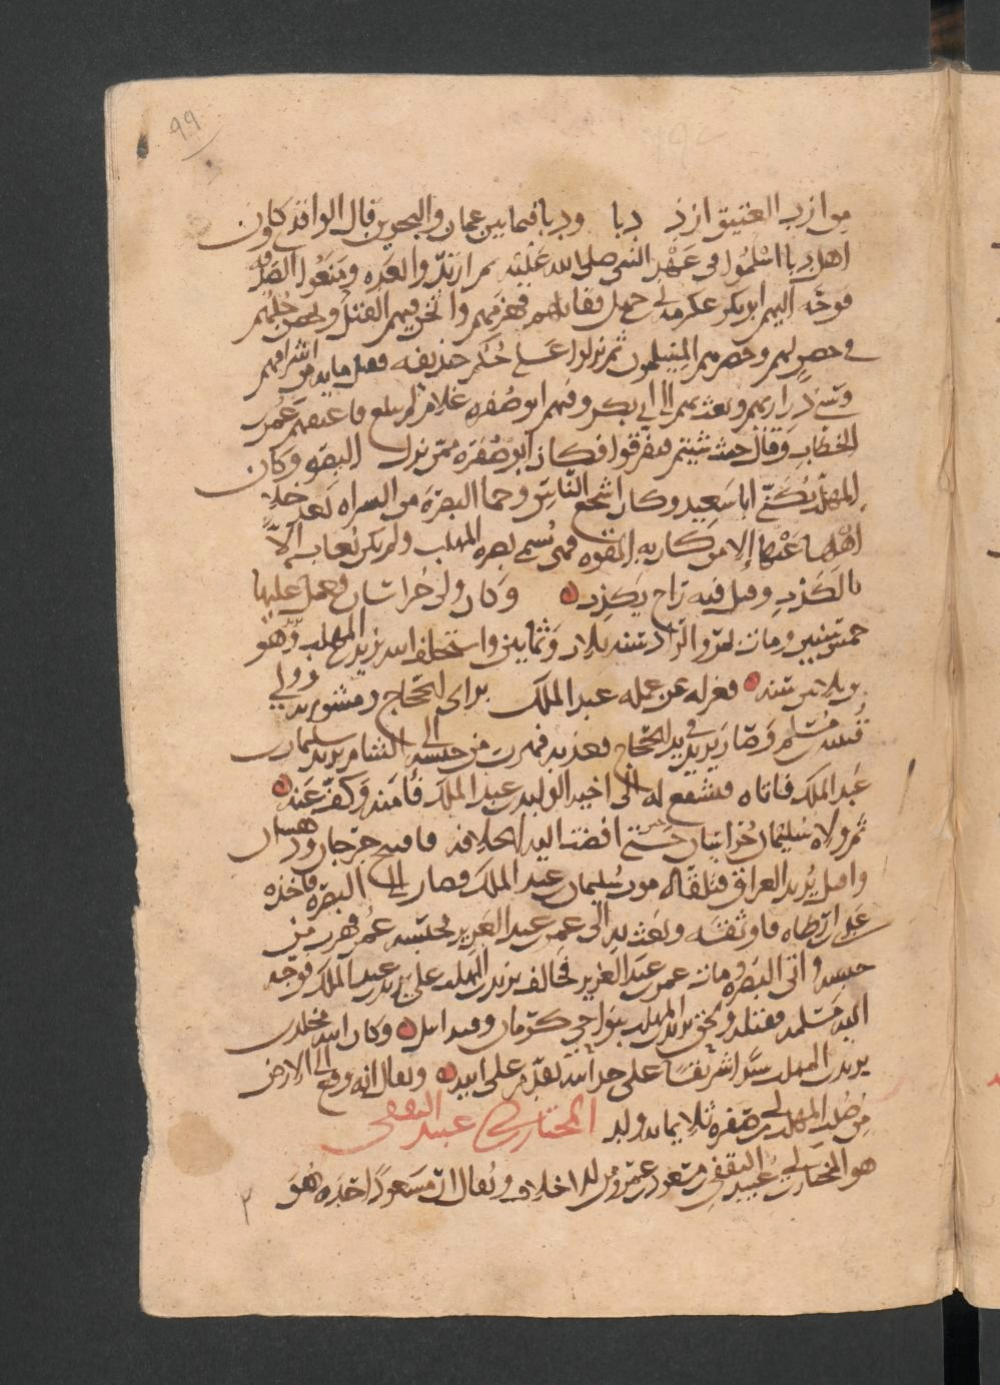 ٩٩
من ازد العتيق ازد دبا ودبا فيما بين عمان والبحرين قال الواقدى كان
اهل دبا اسلموا فى عهد النبى صلى الله عليه ثم ارتدّوا بعده ومنعوا الصدقه
فوجّه اليهم ابو بكر عكرمه بن ابى جهل فقاتلهم فهزمهم واثخن فيهم القتل ولجئ فلهم
فى حصن لهم وحصرهم المسلمون ثم نزلوا على حُكم حذيفه فقتل مايه من اشرافهم
وسبى ذراريهم وبعث بهم الى ابى بكر وفيهم ابو صُفره غلام لم يبلغ فاعتقهم عُمر
بن الخطاب وقال اذهبوا حيث شيتم فتفرقوا فكان ابو صُفره ممن نزل البصره وكان
المهلّب يُكنّى ابا سعيد وكان اشجع الناس وحما البصرة من الشراه بعد جلاء
اهلها عنها إلا من كان به القوه فهى تُسمى بصره المهلب ولم يكن يُعاب الّا
بالكذب وفيه قيل راح يكذب وكان ولى خراسان فعمل عليها
خمس سنين ومات بمرو الروذ سنه ثلاث وثمانين واستخلف ابنه يزيد بن المهلب وهو
بن ثلاثين سنه فعزله عن عمله عبد الملك براى الحجاج ومشورته وولى
قتيبه بن مسلم وصار يزيد فى يد الحجاج فعذبه فهرب من حبسه الى الشام يريد سليمان
بن عبد الملك فاتاه فتشفع له الى اخيه الوليد بن عبد الملك فأمنه وكفّ عنه
ثم ولاه سليمان خراسان حين افضت اليه الخلافه فافتتح جرجان ودهستان
واقبل يُريد العراق فتلقاه موت سُليمان بن عبد الملك فصار الى البصره فاخذه
عدى بن ارطاه فاوثقه وبعث به الى عمر بن عبد العزيز فحبسه عمر فهرب من
حبسه واتى البصره ومات عمر بن عبد العزيز فخالف يزيد بن المهلب على يزيد بن عبد الملك فوجّه
اليه مسلمه فقتله ولحق بنو المهلب بنواحى كرمان وقندابيل وكان ابنه مخلد بن
يزيد بن المهلب سيّدا شريفًا على حداثته يُقدّم على ابيه ويقال انه وقع الى الارض
من صُلب المهلب بن ابى صُفره ثلاثمايه ولد المختار بن ابى عبيد الثقفى
هو المختار بن ابى عُبيد بن مسعود بن عمرو الثقفى من الاحلاف ويُقال ان مسعودًا جدّه هُو